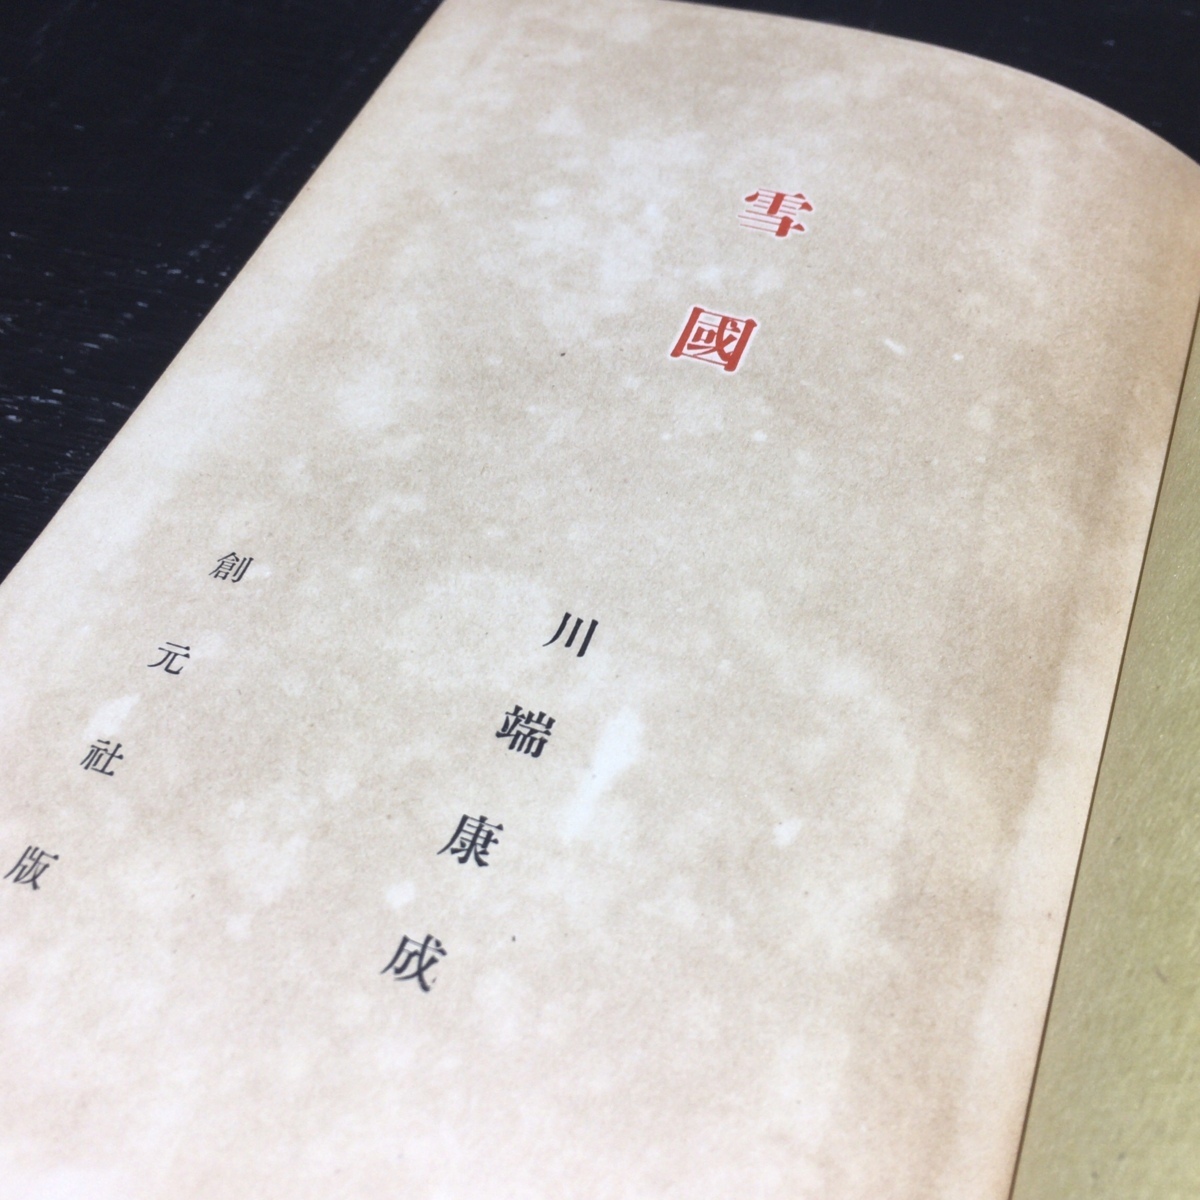 雪國
川端康成
創元社版